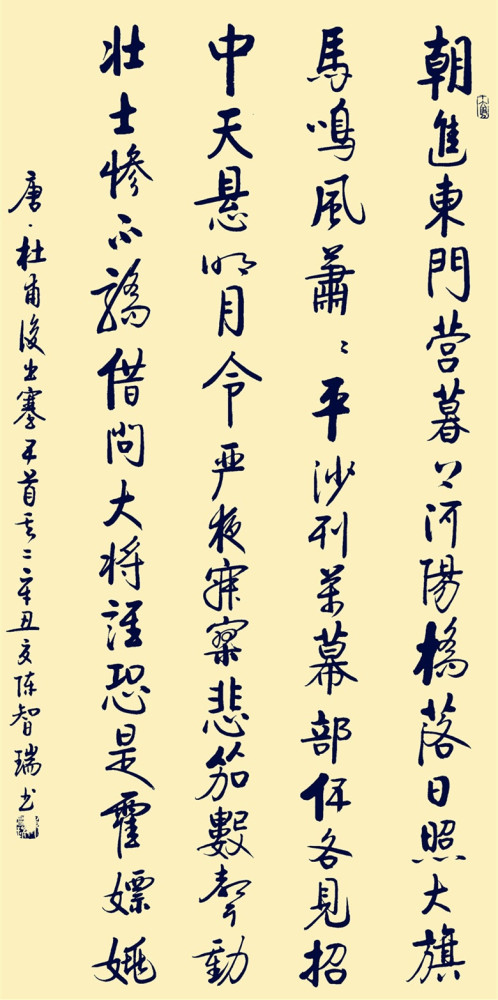 朝進東門营暮上河陽橋落日照大旗
馬鳴風蕭〻平沙列萬幕部伍各見招
中天悬明月令严夜寂寥悲笳數聲動
壮士惨不驕借問大将誰恐是霍嫖姚
唐·杜甫後出塞五首其二辛丑夏陈智瑞书